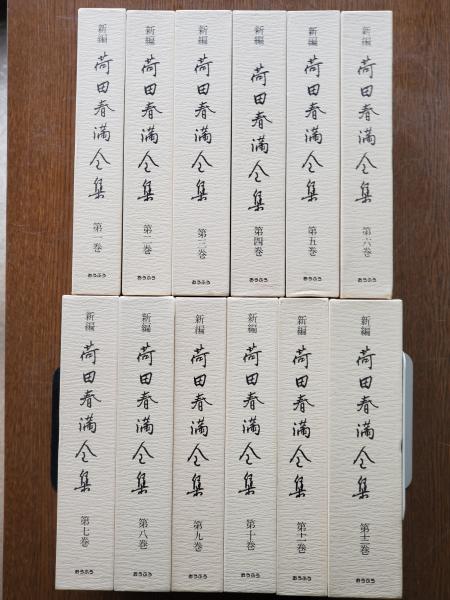 新編 荷田春満全集 第一巻 おうふう
新編 荷田春満全集 第二巻 おうふう
新編 荷田春満全集 第三巻 おうふう
新編 荷田春満全集 第四巻 おうふう
新編 荷田春満全集 第五巻 おうふう
新編 荷田春満全集 第六巻 おうふう
新編 荷田春満全集 第七巻 おうふう
新編 荷田春満全集 第八巻 おうふう
新編 荷田春満全集 第九巻 おうふう
新編 荷田春満全集 第十巻 おうふう
新編 荷田春満全集 第十一巻 おうふう
新編 荷田春満全集 第十二巻 おうふう